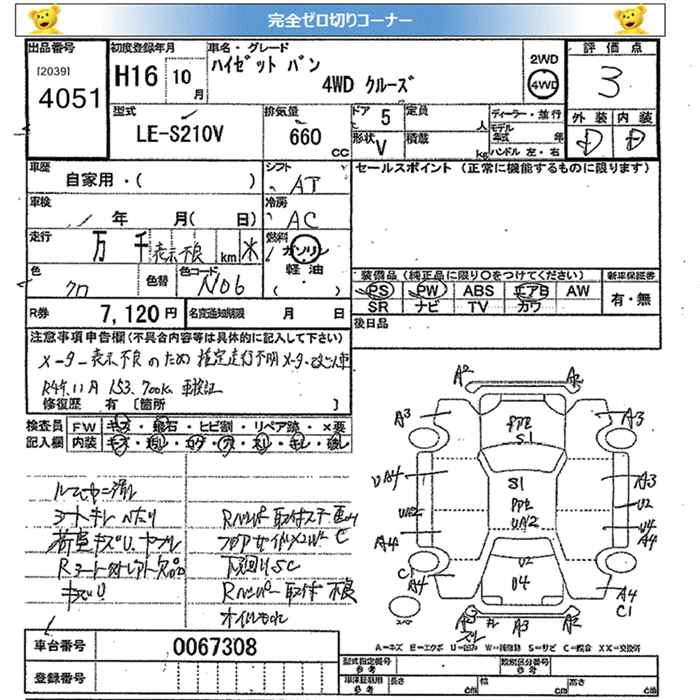 完全ゼロ切りコーナー
出品番号
[2039]
4051
初度登録年月
H16 10月
車名・グレード
ハイゼット バン
4WD クルーズ
2WD
4WD
評価点
3
型式
LE-S210V
排気量
660 CC
ドア 5
形状 V
定員 人
積載 kg
ディーラー・並行
モデル年式 年
ハンドル 左・右
外装 内装
D D
車歴
自家用・( )
シフト
AT
車検
年 月( 日)
冷房
AC
走行
万 千 表示不良 km 米
燃料
ガソリン
軽油
( )
色
クロ
色替
色コード
N06
R券
7,120円
名変通知期限 月 日
セールスポイント(正常に機能するものに限ります)
装備品(純正品に限り○をつけてください)
PS PW ABS エアB AW
SR ナビ TV カワ
新車保証書
有・無
後日品
注意事項申告欄(不具合内容等は具体的に記入して下さい)
メーター表示不良のため 推定走行不明 メーター改ざん車
R4年.11月 153,700km 車検証
修復歴 有 [箇所 ]
検査員記入欄
FW キズ・飛石・ヒビ割・リペア跡・×要
内装 キズ・汚レ・コゲ・穴・スレ・キレ・破レ
シートキレ ヘタリ
荷室キズU.
キズU
下廻りSC
Rバンパー取付不良
オイルもれ
A2 A2
A3 A3
PPE
S1
S1
PPE
UA2
UA4 A3
UA2 U2
A4 U4
A4
U2
U4
C1 A4
A4
C1
スペア
A3 A2
A=キズ E=エクボ U=凹ミ W=補修跡 S=サビ C=腐食 XX=交換済
車台番号
0067308
登録番号
型式指定番号
参考
類別区分番号
参考
車体証取用
参考
長さ cm
幅 cm
高さ cm